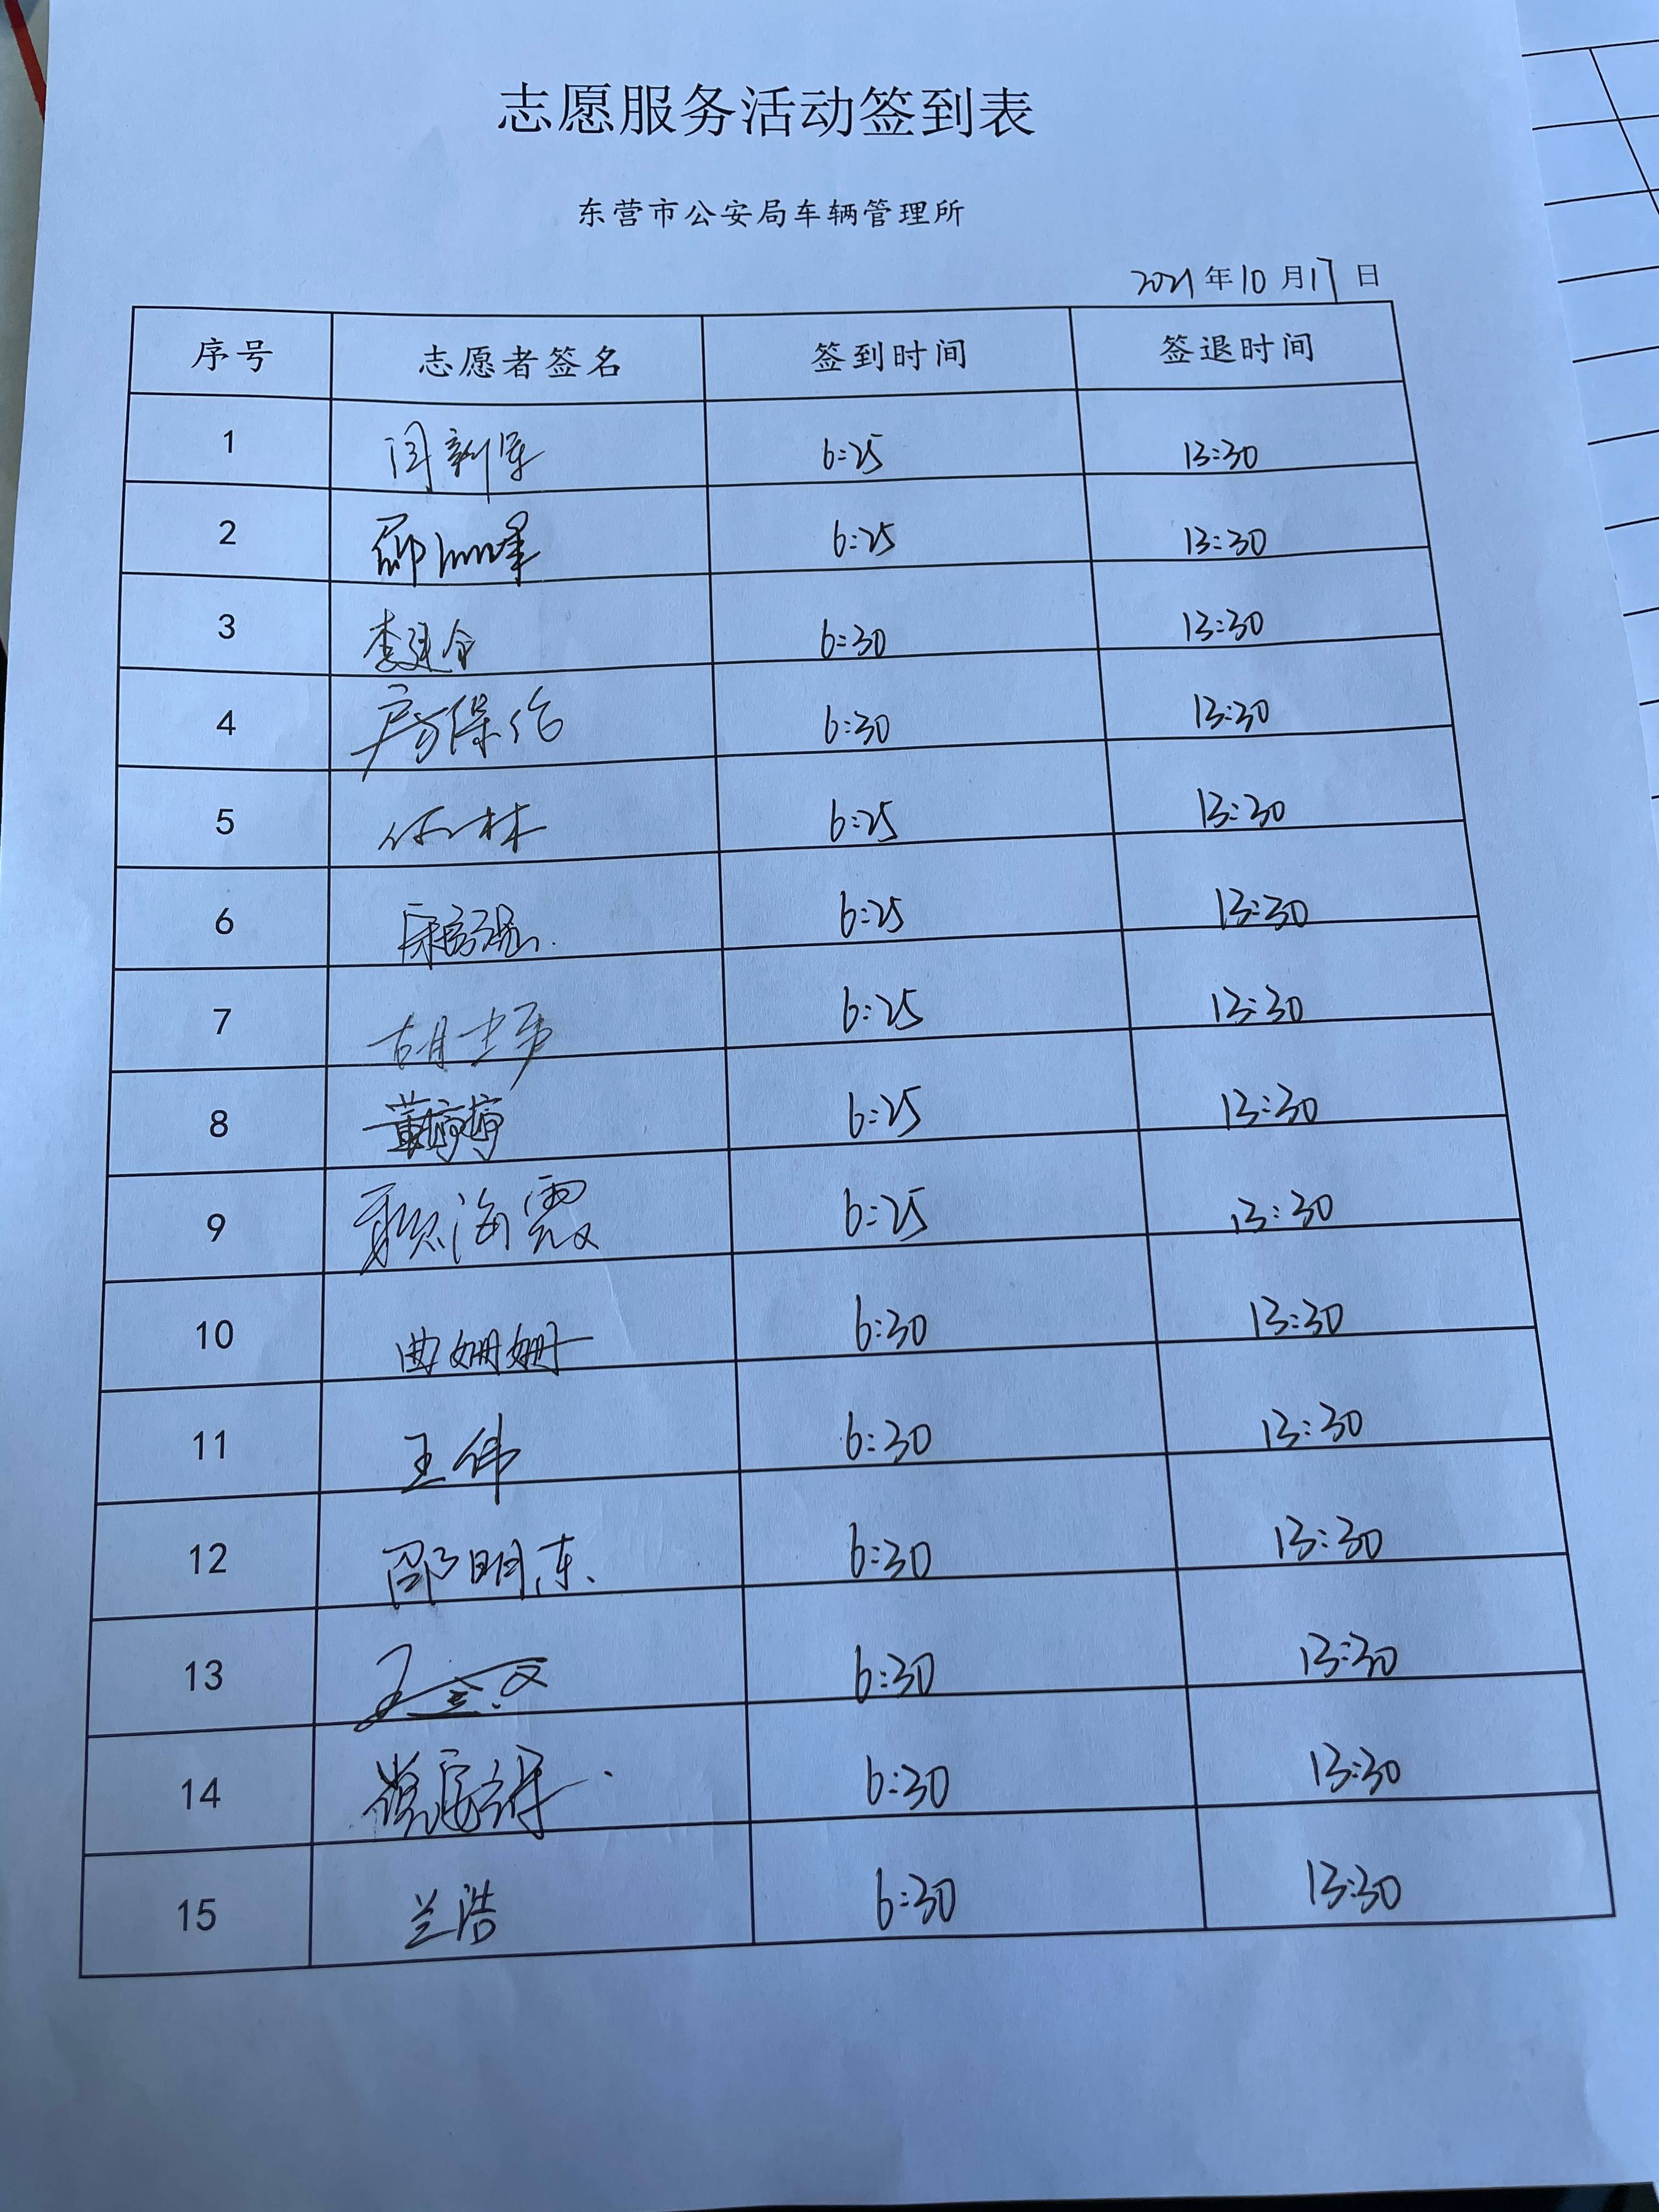 志愿服务活动签到表
东营市公安局车辆管理所
2021年10月17日
序号 志愿者签名 签到时间 签退时间
1 闫新军 6:25 13:30
2 6:25 13:30
3 6:30 13:30
4 6:30 13:30
5 6:25 13:30
6 6:25 13:30
7 6:25 13:30
8 董婷婷 6:25 13:30
9 海霞 6:25 13:30
10 曲姗姗 6:30 13:30
11 王伟 6:30 13:30
12 邵明东 6:30 13:30
13 6:30 13:30
14 6:30 13:30
15 兰浩 6:30 13:30